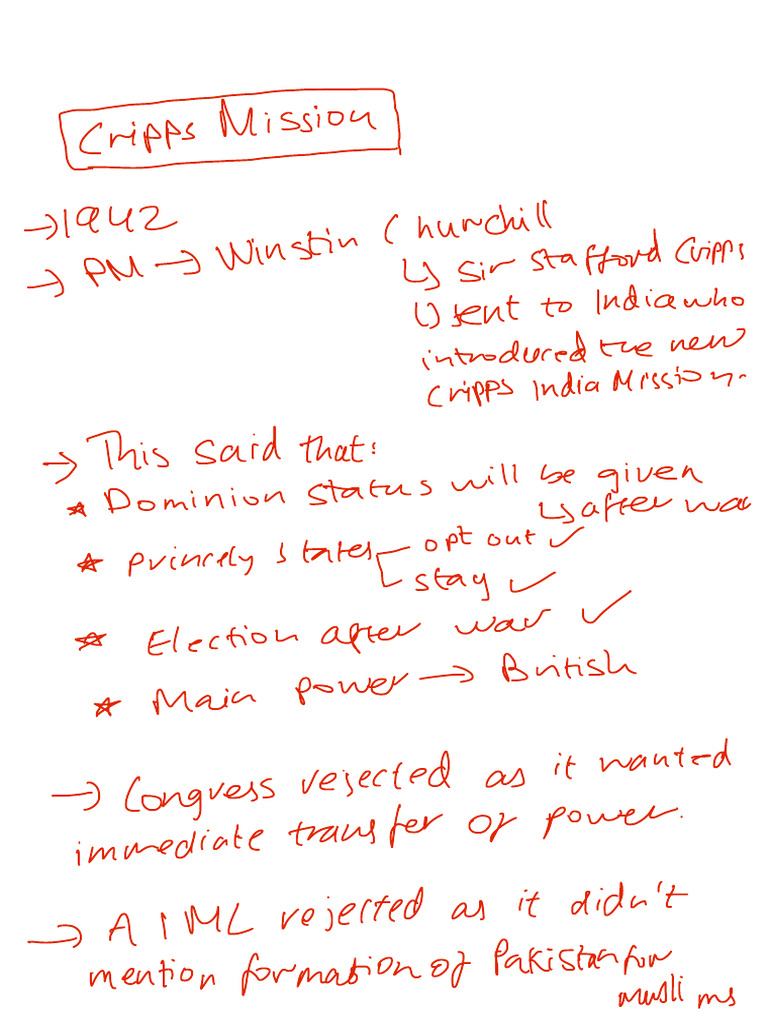 Cripps Mission
→ 1942
→ PM → Winstin Churchill
↳ Sir Stafford Cripps
↳ sent to India who
introduced the new
Cripps India Mission.
→ This said that:
* Dominion status will be given
↳ after war
* princely states opt out ✓
stay ✓
* Election after war ✓
* Main power → British
→ Congress rejected as it wanted
immediate transfer of power.
→ AIML rejected as it didn't
mention formation of Pakistan for
muslims